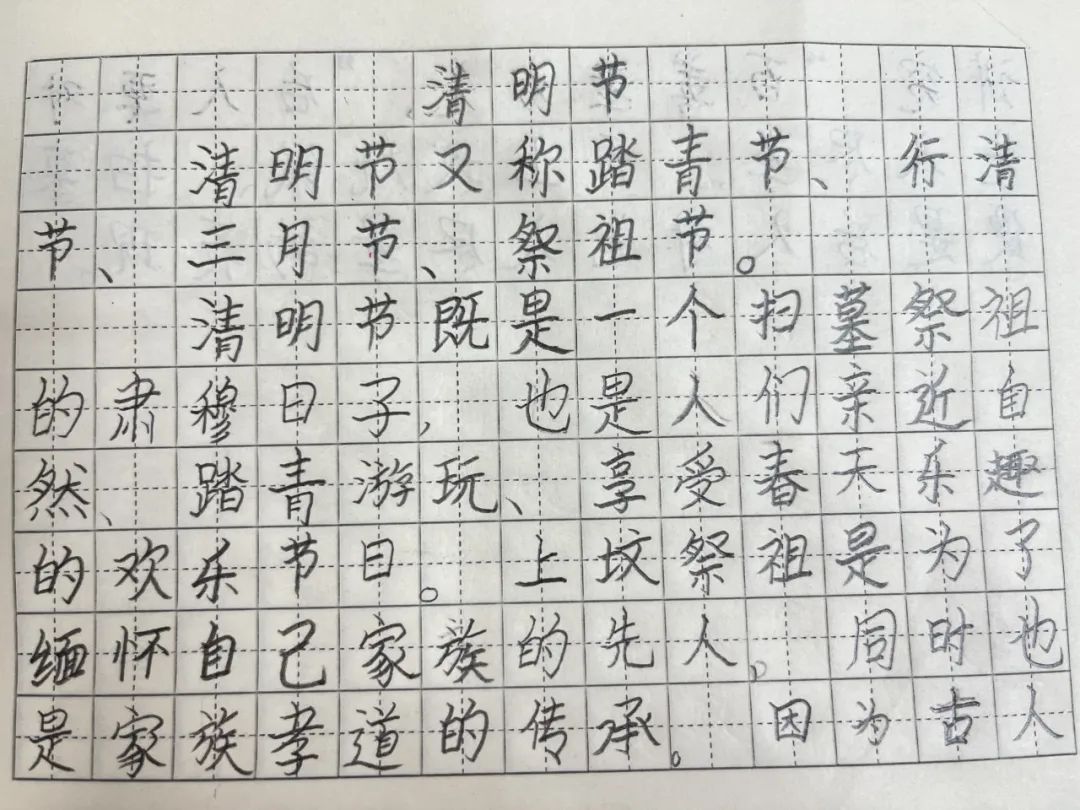 清明节
清明节又称踏青节、行清
节、三月节、祭祖节。
清明节既是一个扫墓祭祖
的肃穆日子,也是人们亲近自
然、踏青游玩、享受春天乐趣
的欢乐节目。上坟祭祖是为了
缅怀自己家族的先人。同时也
是家族孝道的传承。因为古人